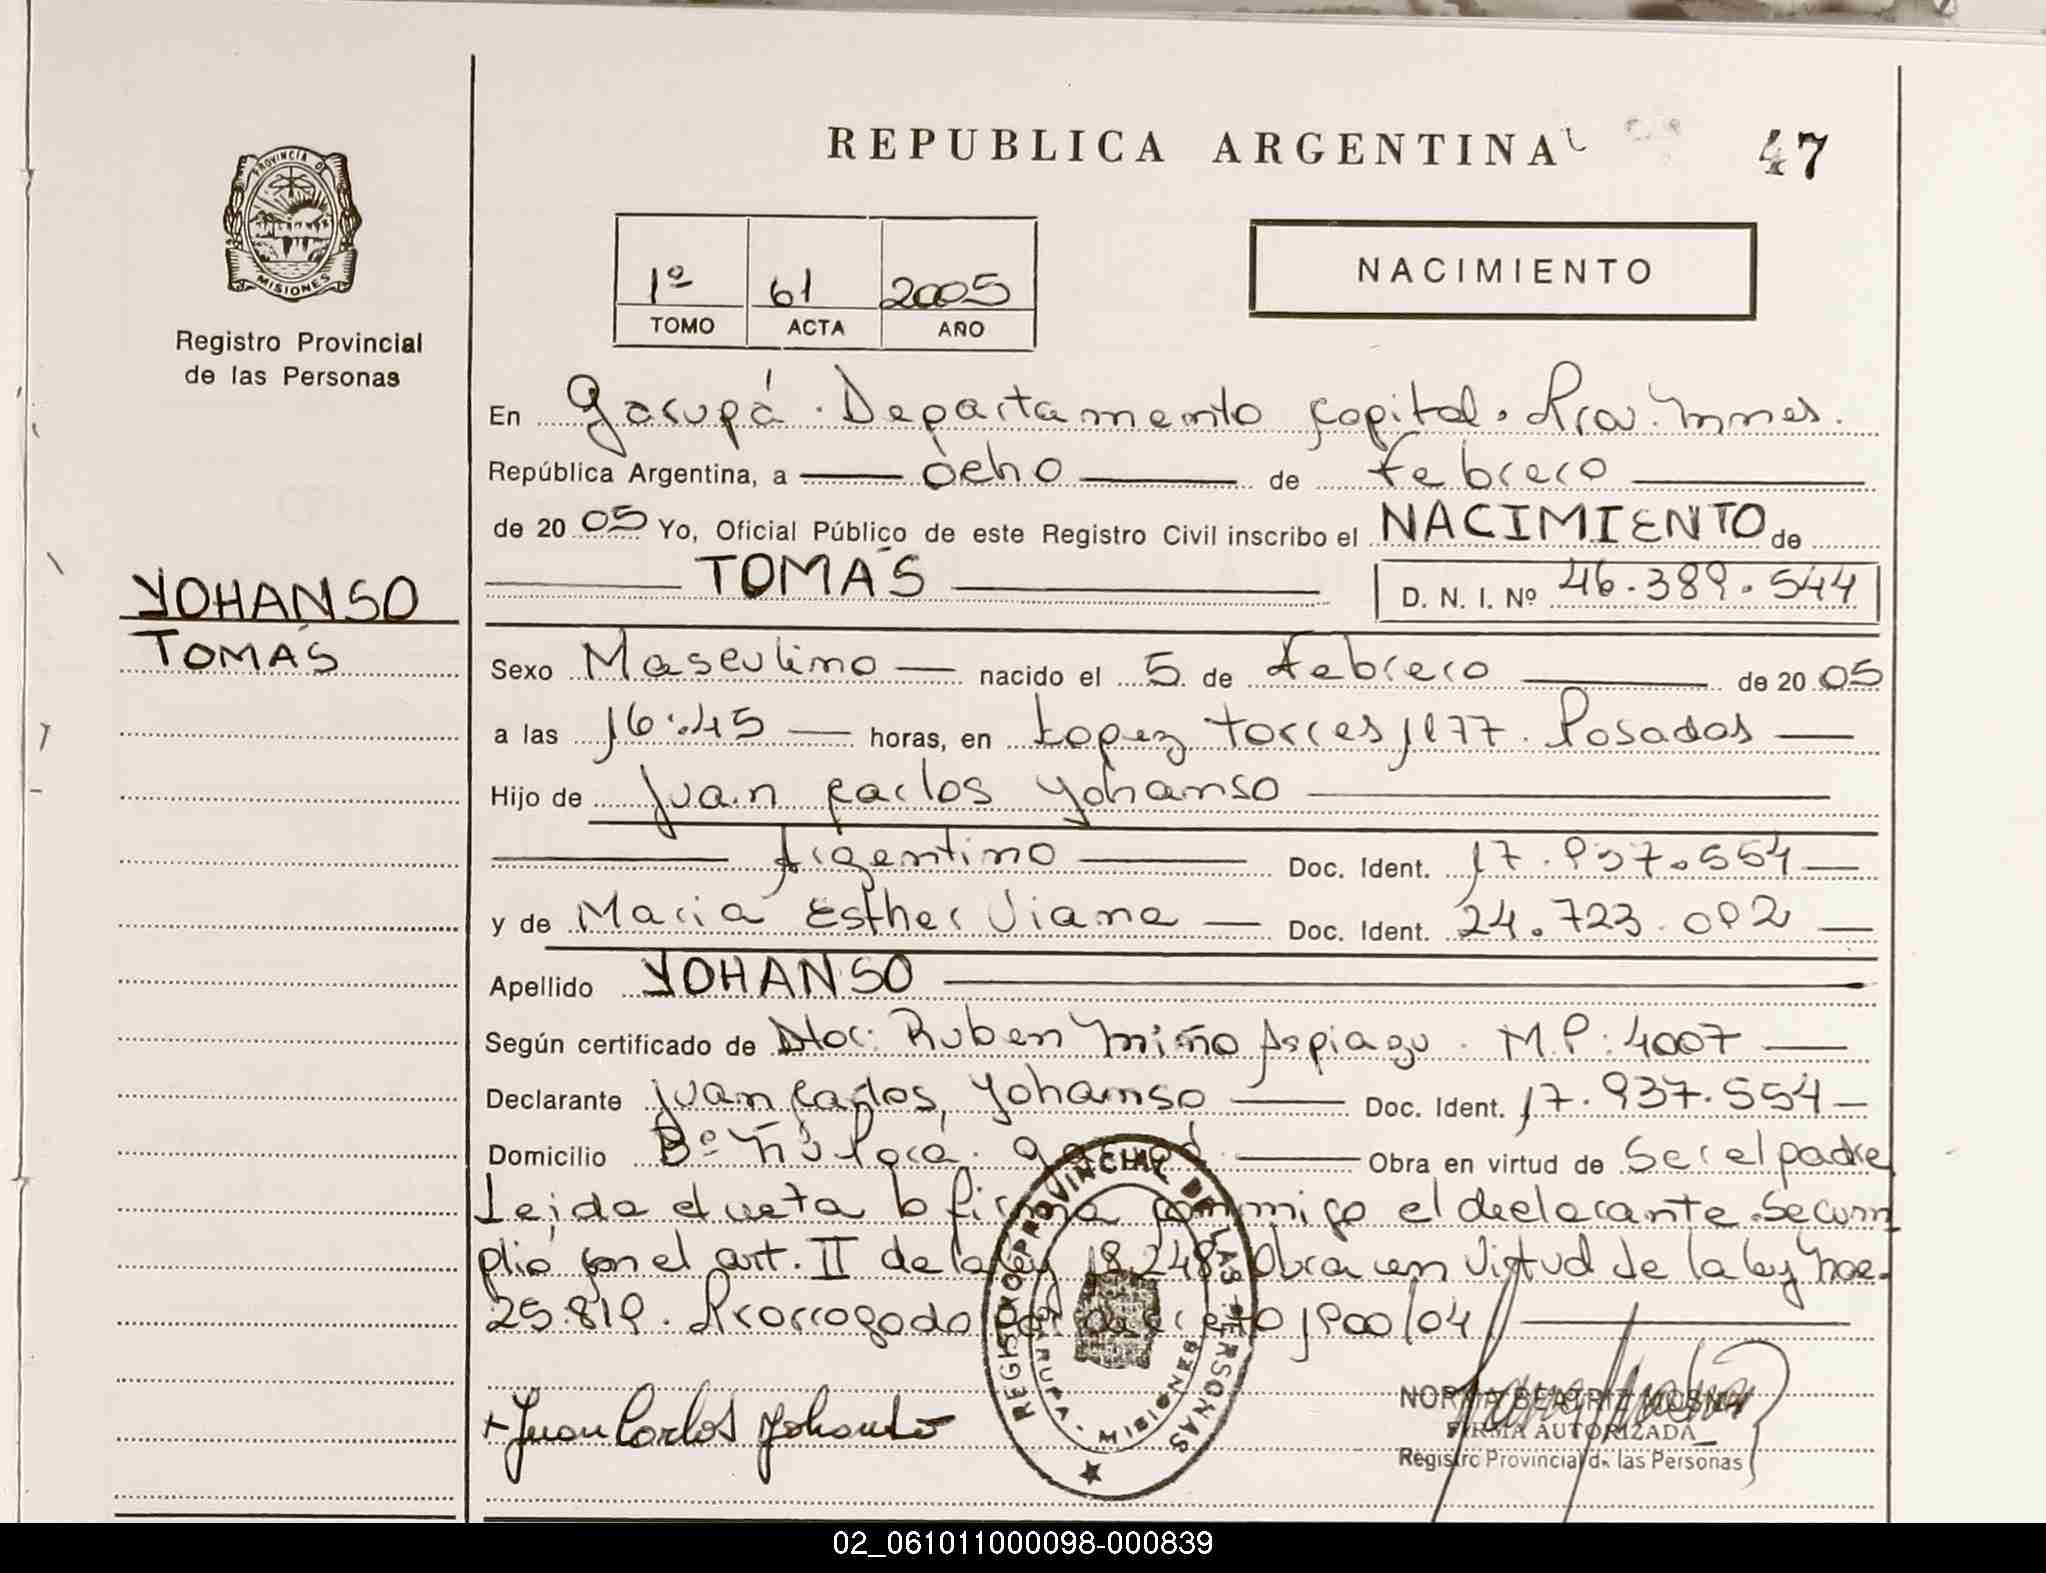 REPUBLICA ARGENTINA
47
PROVINCIA DE
MISIONES
Registro Provincial
de las Personas
1º 61 2005
TOMO ACTA AÑO
NACIMIENTO
En Garupá. Departamento Capital. Prov. Mnes.
República Argentina, a ocho de febrero
de 2005 Yo, Oficial Público de este Registro Civil inscribo el NACIMIENTO de
TOMÁS D. N. I. Nº 46.389.544
YOHANSO
TOMÁS
Sexo Masculino nacido el 5 de febrero de 2005
a las 16:45 horas, en Lopez Torres 1177. Posadas
Hijo de Juan Carlos Yohanso
Argentino Doc. Ident. 17.937.554
y de María Esther Viana Doc. Ident. 24.723.092
Apellido YOHANSO
Según certificado de Doc: Ruben Miño Aspiazu. M.P: 4007
Declarante Juan Carlos, Yohanso Doc. Ident. 17.937.554
Domicilio Bº Ñu Porá. Garupá. Obra en virtud de Ser el padre
Leida el acta la firma conmigo el declarante. Se cum
plió con el art. II de la ley 18.248. Obra en virtud de la ley Nac.
25.819. Prorrogado por decreto 1900/04
REGISTRO PROVINCIAL DE LAS PERSONAS
GARUPA - MISIONES
Juan Carlos Yohanso
NORMA BEATRIZ
FIRMA AUTORIZADA
Registro Provincial de las Personas
02_061011000098-000839